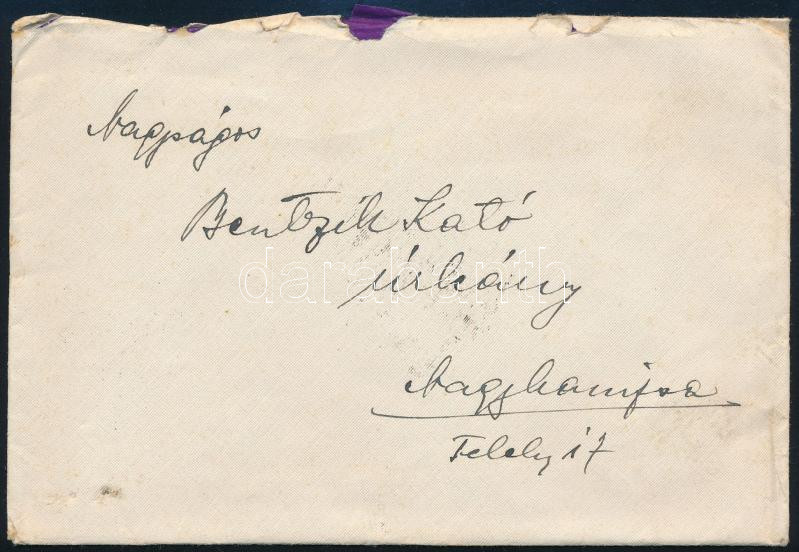 Nagyságos
Bentzik Kató
úrleány
darabanth
Nagykanizsa
Teleky 17